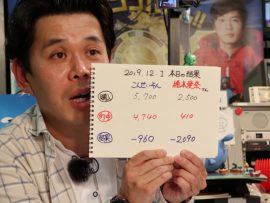 2019.12.1 本日の結果
こんせーるん 橋本愛奈さん
購入 5,700 2,500
的中 4,740 410
結果 -960 -2090